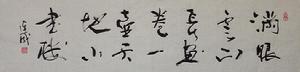 滿眼
雲山
長畫
卷一
壺天
地小
書樓